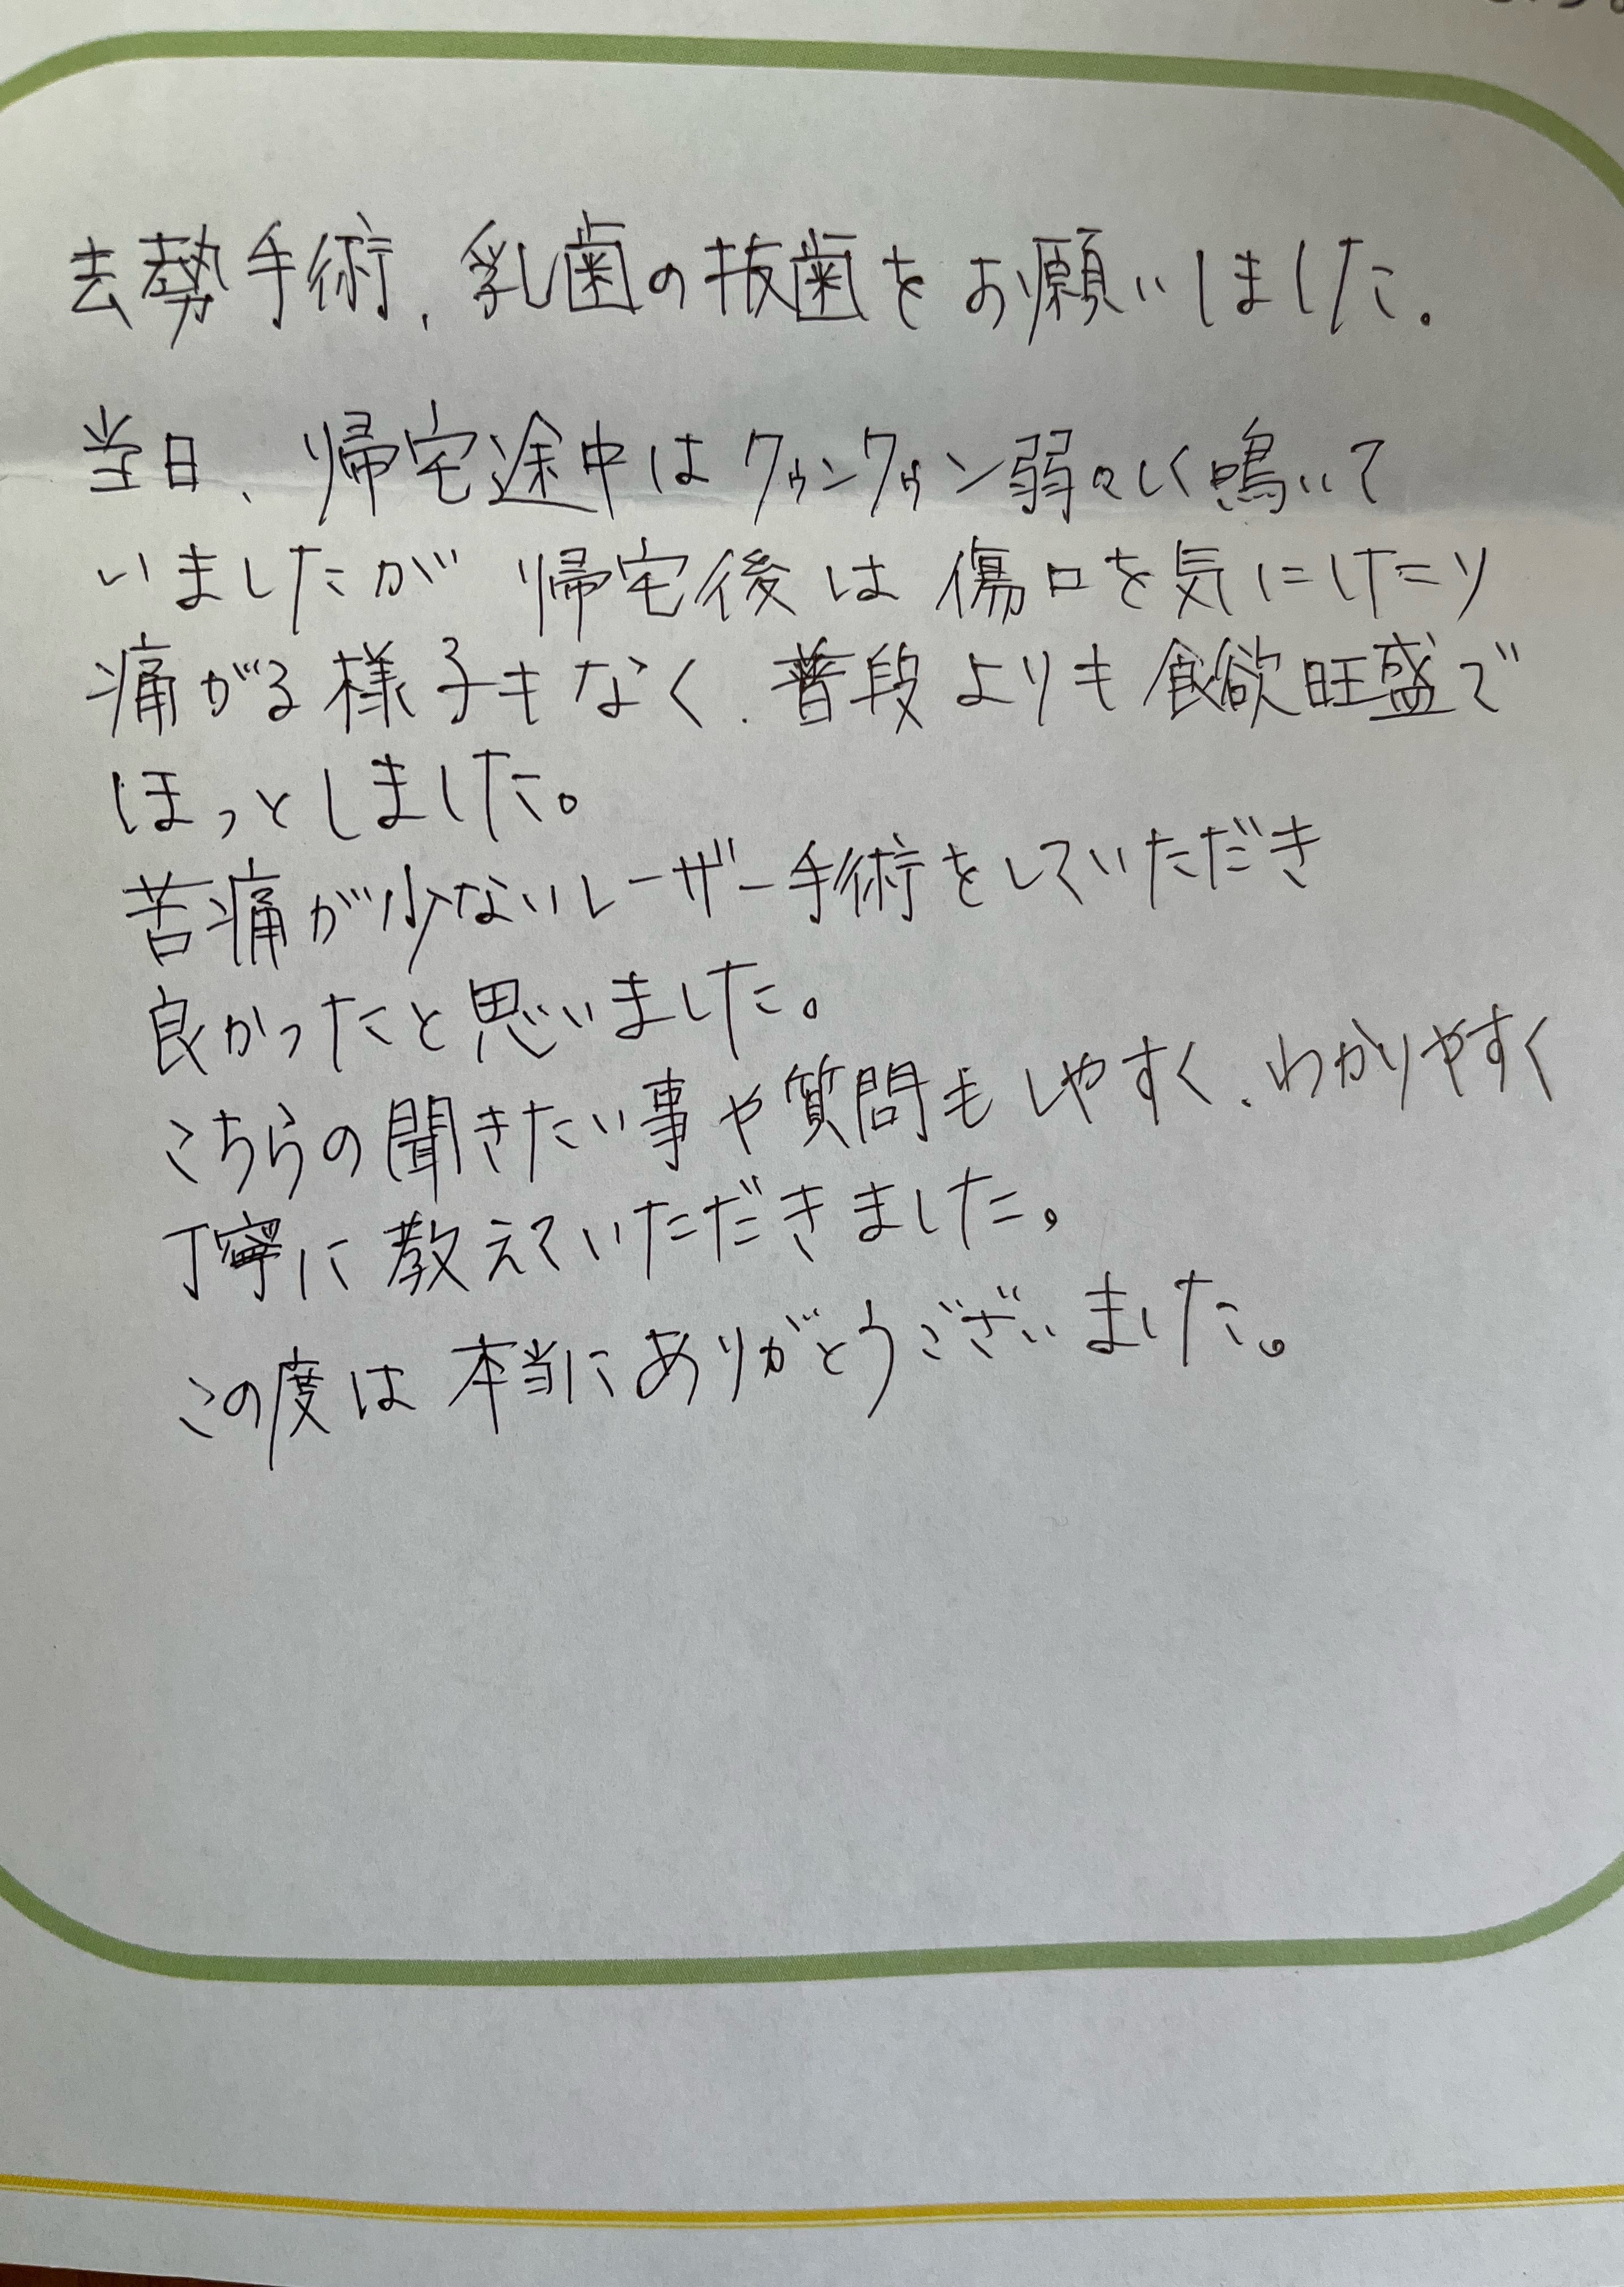 去勢手術、乳歯の抜歯をお願いしました。
当日、帰宅途中はクゥンクゥン弱々しく鳴いて
いましたが 帰宅後は傷口を気にしたり
痛がる様子もなく、普段よりも食欲旺盛で
ほっとしました。
苦痛が少ないレーザー手術をしていただき
良かったと思いました。
こちらの聞きたい事や質問もしやすく、わかりやすく
丁寧に教えていただきました。
この度は本当にありがとうございました。